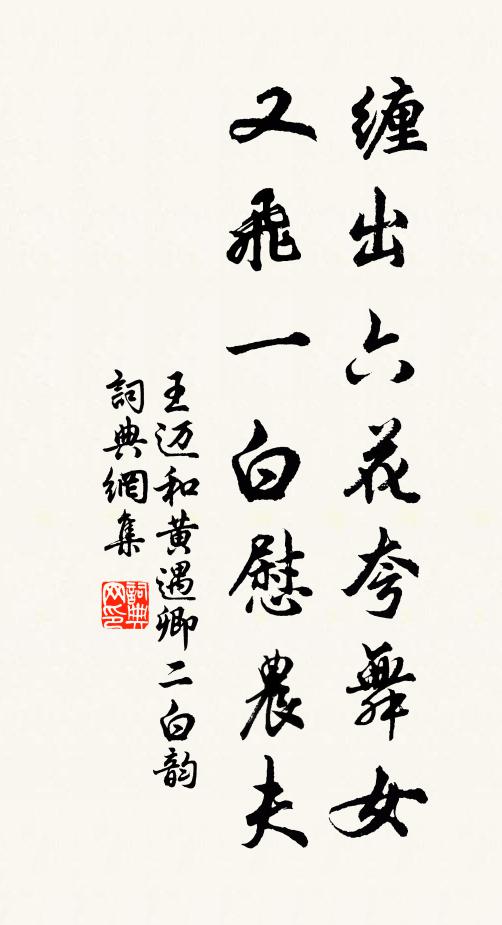 缠出六花夸舞女
又飛一白慰農夫
王迈和黄遇卿二白韵
詞典網集
詞典网印